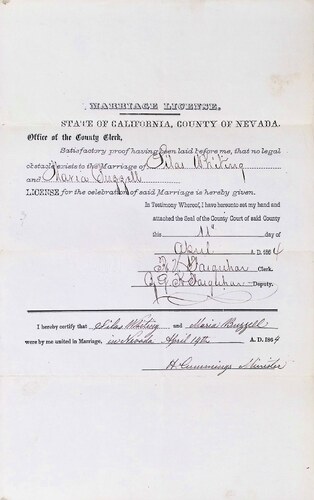 MARRIAGE LICENSE.
STATE OF CALIFORNIA, COUNTY OF NEVADA.
Office of the County Clerk,
Satisfactory proof having been laid before me, that no legal
obstacle exists to the Marriage of Silas Whiting
and Maria Buzzell
LICENSE for the celebration of said Marriage is hereby given.
In Testimony Whereof, I have hereunto set my hand and
attached the Seal of the County Court of said County
this 11th day of
April A. D. 1864
Farquhar Clerk.
Farquhar Deputy.
I hereby certify that Silas Whiting and Maria Buzzell
were by me united in Marriage, in Nevada April 19th A. D. 1864
H Cummings Minister